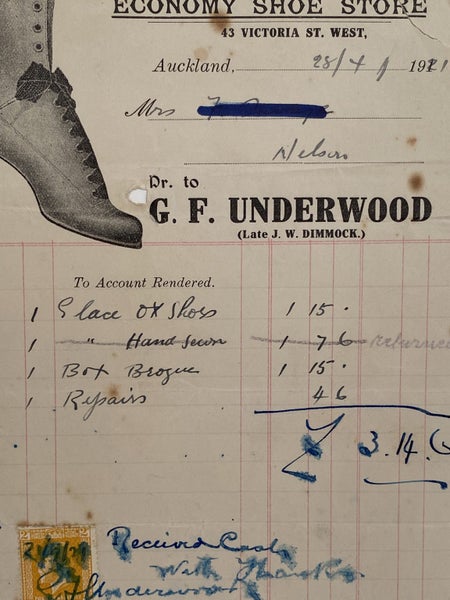 ECONOMY SHOE STORE
43 VICTORIA ST. WEST,
Auckland, 28/4/ 1921
Mrs
Nelson
Dr. to
G. F. UNDERWOOD
(Late J. W. DIMMOCK.)
To Account Rendered.
1 Glace Ox Shoes 1 15 .
1 " Hand Sewn 1 7 6 returned
1 Box Brogue 1 15 .
1 Repairs 4 6
£ 3.14.6
Received Cash
With Thanks
G F Underwood